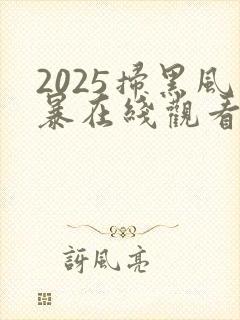 2025掃黑風
暴在綫觀看
訝風亮